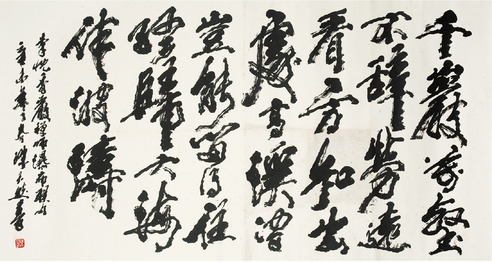 千巖萬壑
不辭勞遠
看方知出
處高溪澗
豈能留得住
終歸大海
作波濤
李忱香嚴禪師瀑布聯句
辛未 陳天然書